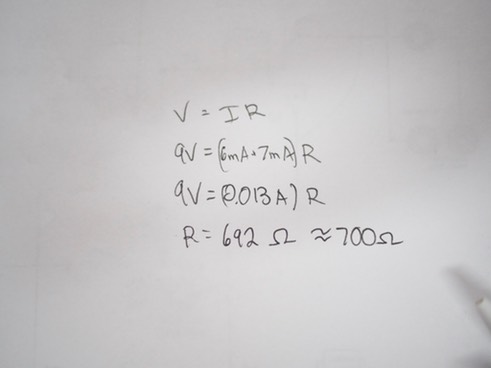 V = IR
9V = (6mA+7mA)R
9V = (0.013A)R
R = 692 Ω ≈ 700Ω